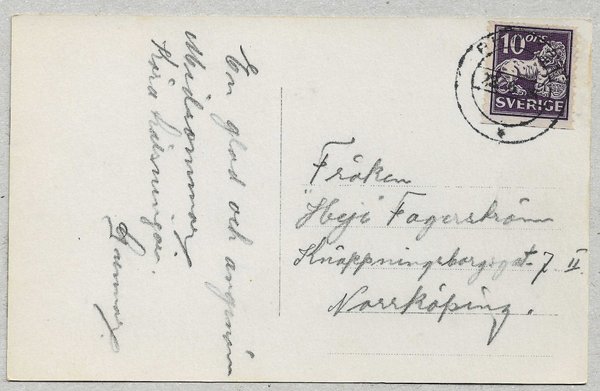 En glad och angenäm
Midsommar
Kära hälsningar.
10 ÖRE
SVERIGE
Fröken
"Heje" Fagerström
Knäppningsborgsgat. 7 II
Norrköping.